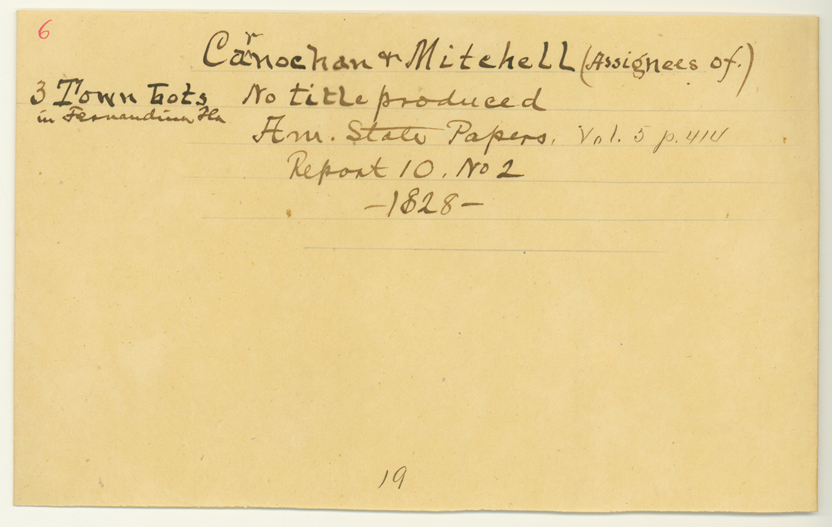 6
Carnochan & Mitchell (Assignees of.)
3 Town Lots No title produced
in Fernandina Fla
Am. State Papers, Vol. 5 p. 414
Report 10. No 2
—1828—
19